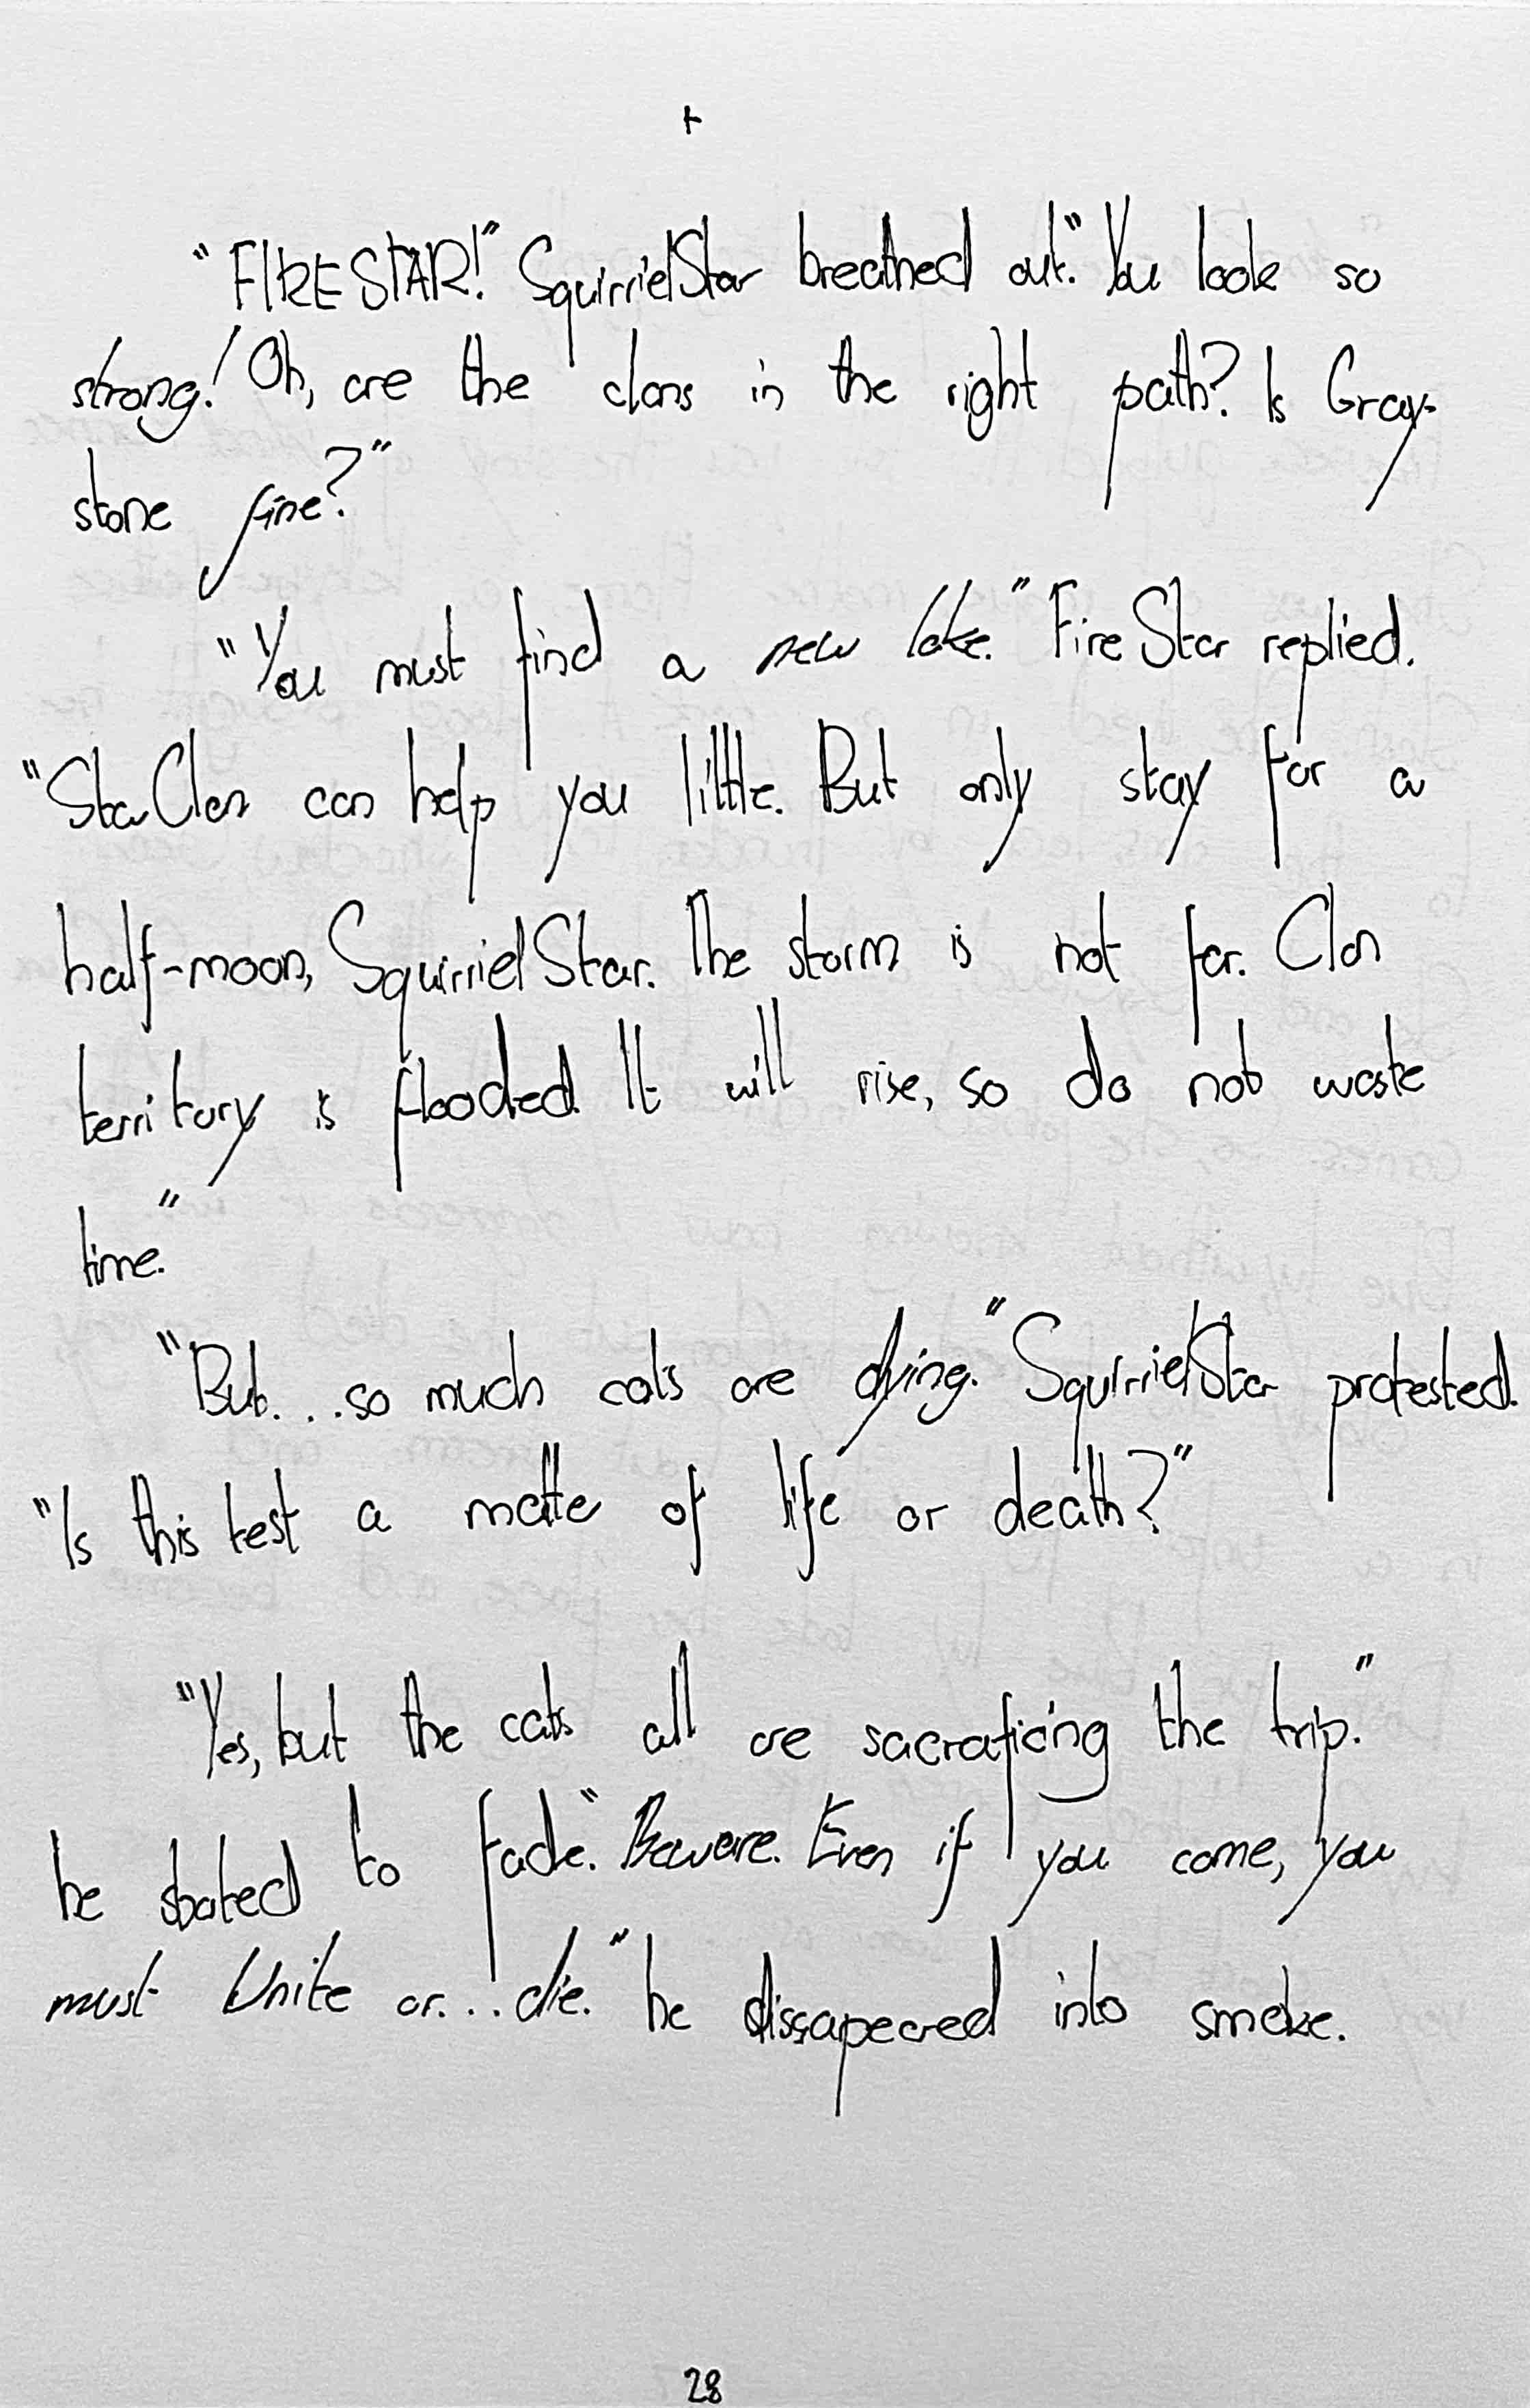 +
"FIRESTAR!" SquirrielStar breathed out. "You look so
strong! Oh, are the clans in the right path? Is Gray-
stone fine?"
"You must find a new lake." FireStar replied.
"StarClan can help you little. But only stay for a
half-moon, SquirrielStar. The storm is not far. Clan
territory is flooded. It will rise, so do not waste
time."
"But...so much cats are dying." SquirrielStar protested.
"Is this test a matte of life or death?"
"Yes, but the cats all are sacraficing the trip."
he stated to fade. "Beware. Even if you come, you
must Unite or...die." he dissapeared into smoke.
28